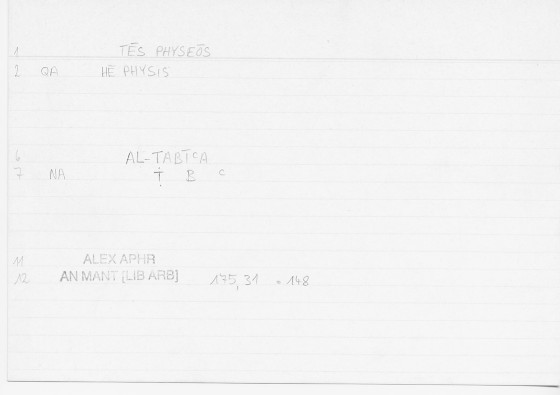 1 TĒS PHYSEŌS
2 QA HĒ PHYSIS
6 AL-ṬABĪʿA
7 NA Ṭ B ʿ
11 ALEX APHR
12 AN MANT [LIB ARB] 175,31 = 148